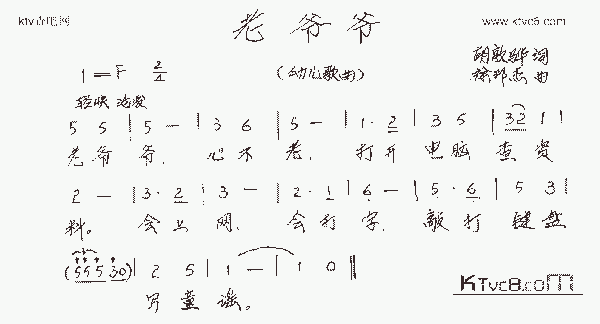 www.ktvc8.com
老爷爷
1=F 2/4
(幼儿歌曲)
词
曲
轻快 活泼
5 5 | 5 - | 3 6 | 5 - | 1 · 2 | 3 5 | 32 1 |
老爷爷，心不老，打开电脑查资
2 - | 3 · 2 | 3 - | 2 · 1 | 6 - | 5 · 6 | 5 3 |
料。会上网，会打字，敲打键盘
(55 5 30) | 2 5 | 1 - | 1 0 ||
写童谣。
KTvc8.com